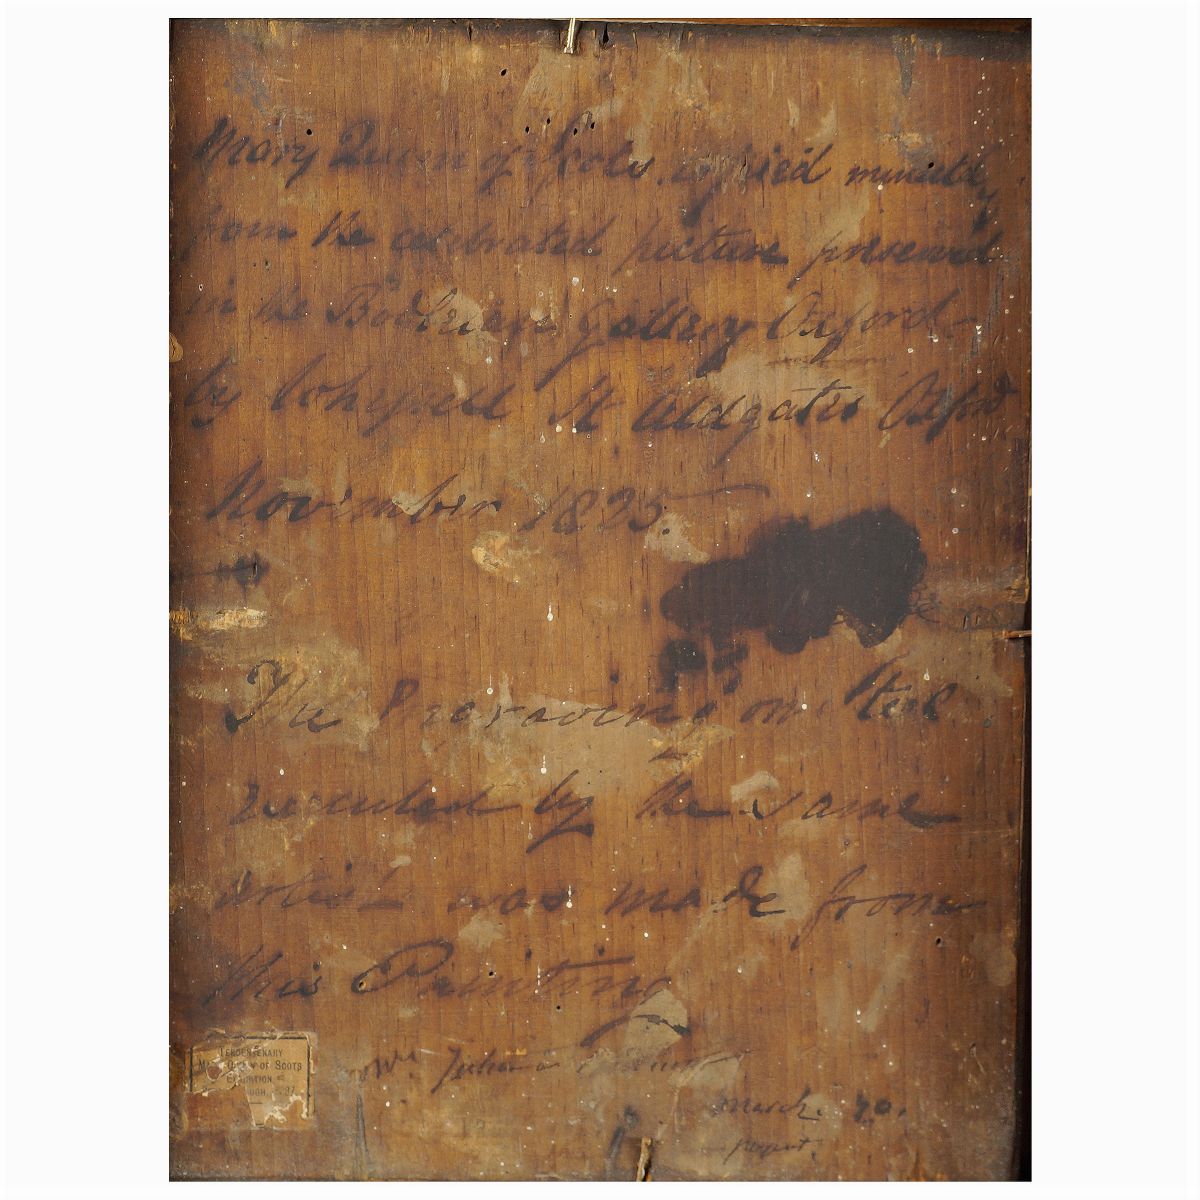 Mary Queen of Scots. copied minutely
from the celebrated picture preserved
in the Bodleian Gallery Oxford
by St Aldgates Oxford
November 1825.
The Engraving on Steel
executed by the same
artist was made from
this Painting
TERCENTENARY
MARY QUEEN OF SCOTS
EXHIBITION
March. 90.